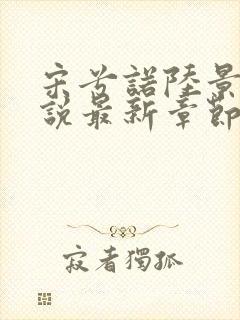 宋兮諾陸景
說最新章節
寂者獨孤